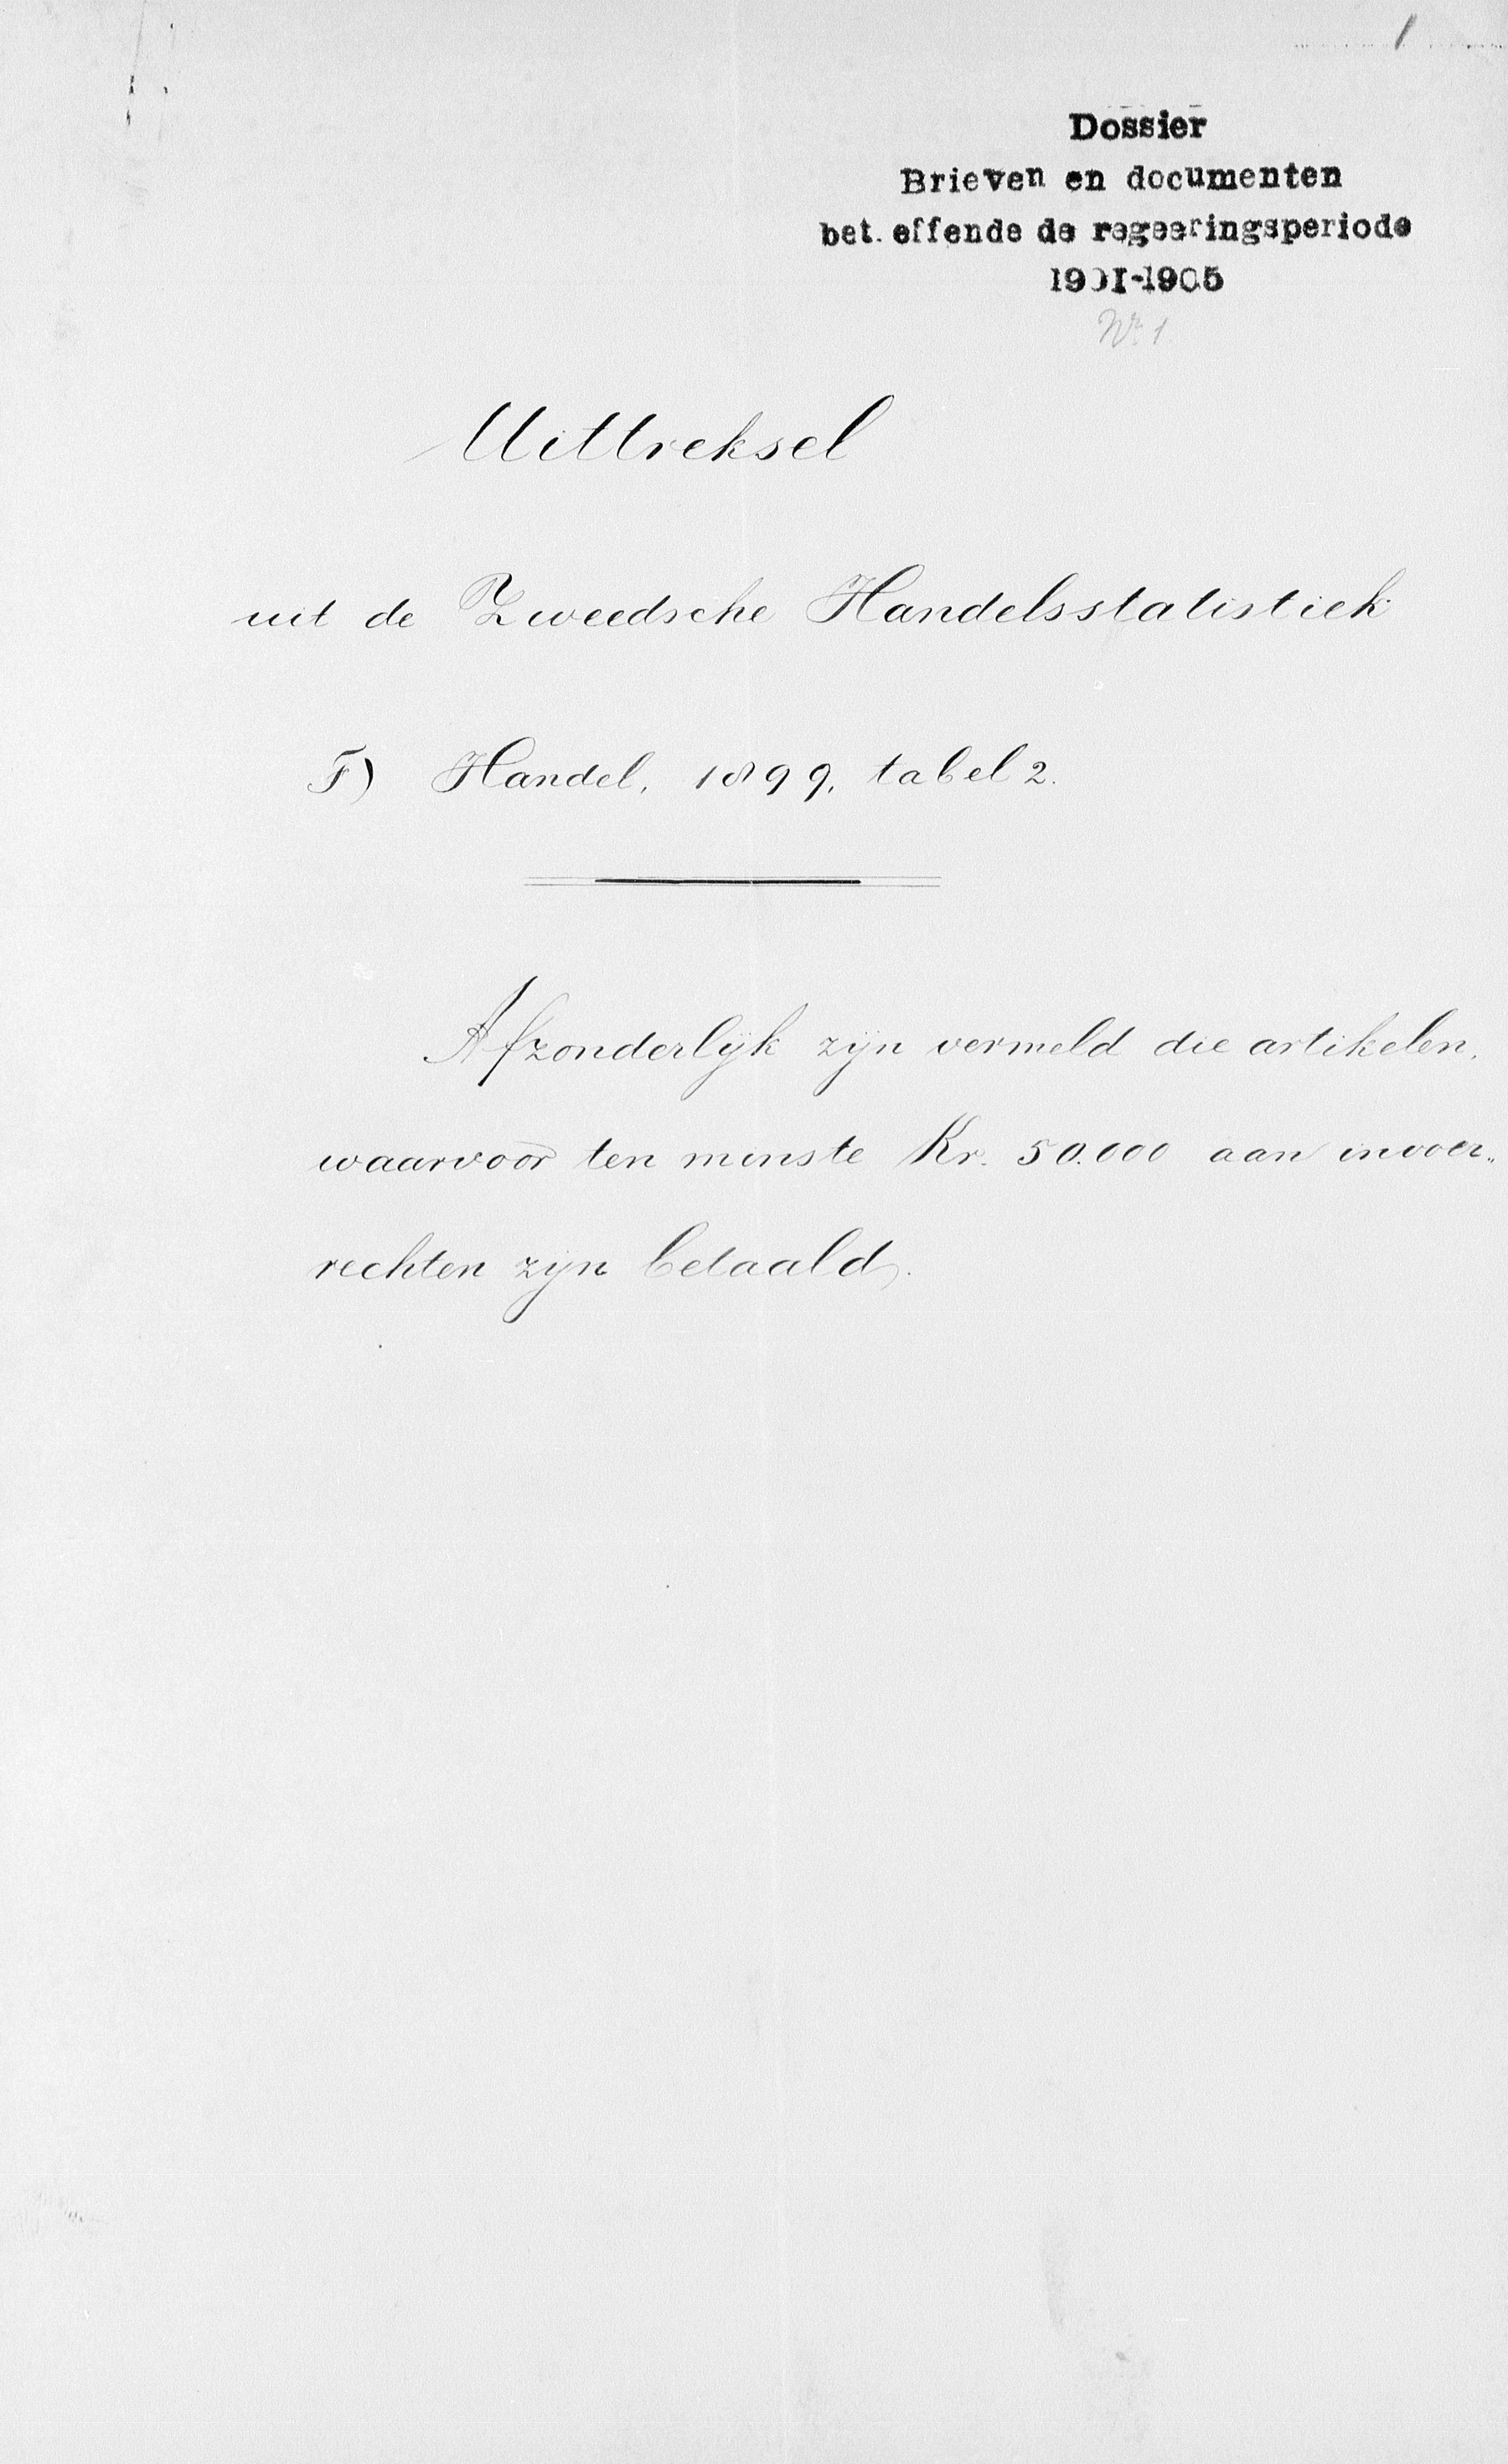 1
Dossier
Brieven en documenten
betreffende de regeeringsperiode
1901-1905
Nr. 1.
Uittreksel
uit de Zweedsche Handelsstatistiek
F) Handel, 1899, tabel 2.
Afzonderlijk zijn vermeld die artikelen,
waarvoor ten minste Kr. 50.000 aan invoer-
rechten zijn betaald.